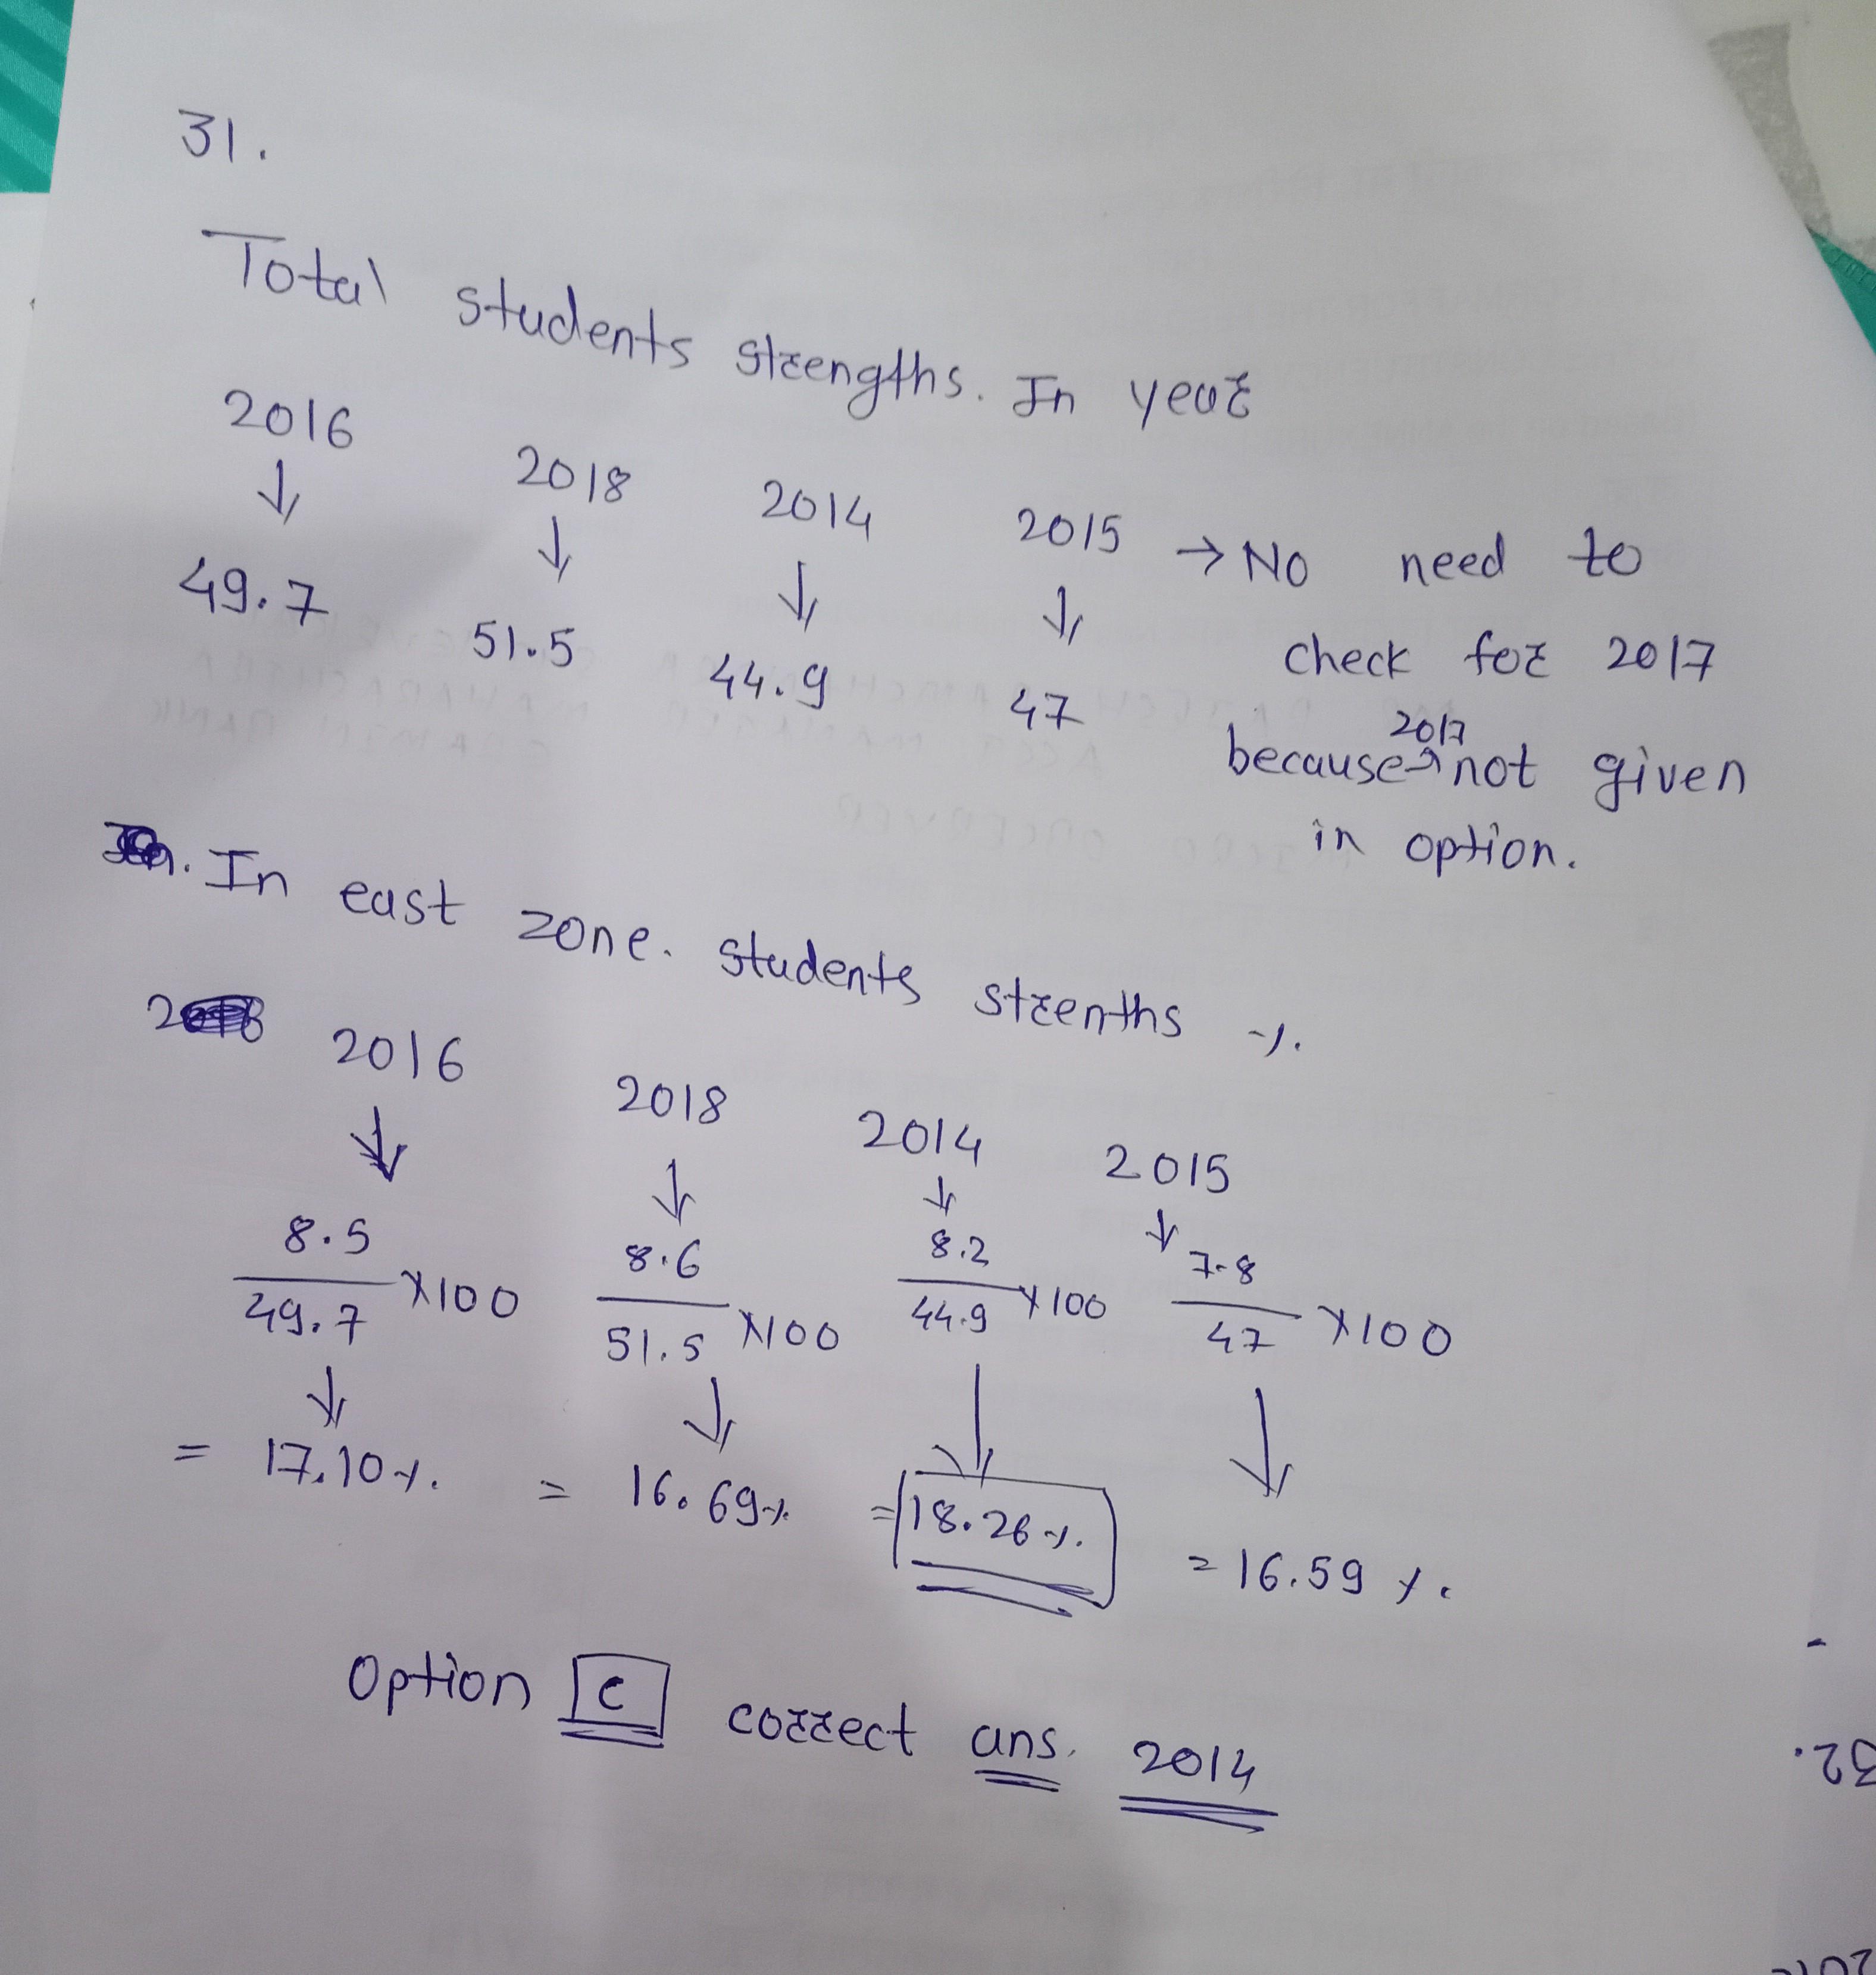 31.
Total students strengths. In year
2016 2018 2014 2015 → No need to
↓ ↓ ↓ ↓ check for 2017
49.7 51.5 44.9 47 because 2017 not given
in option.
In east zone. students strenths %.
2016 2018 2014 2015
↓ ↓ ↓ ↓
8.5/49.7 ×100 8.6/51.5 ×100 8.2/44.9 ×100 7.8/47 ×100
↓ ↓ ↓ ↓
= 17.10%. = 16.69% = 18.26%. = 16.59%.
Option C correct ans. 2014
32.